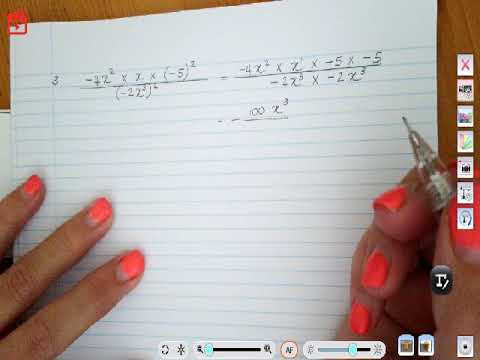 3 (-4x² × x × (-5)²)/((-2x³)²) = (-4x² × x¹ × -5 × -5)/(-2x³ × -2x³)
- - 100x³
AF